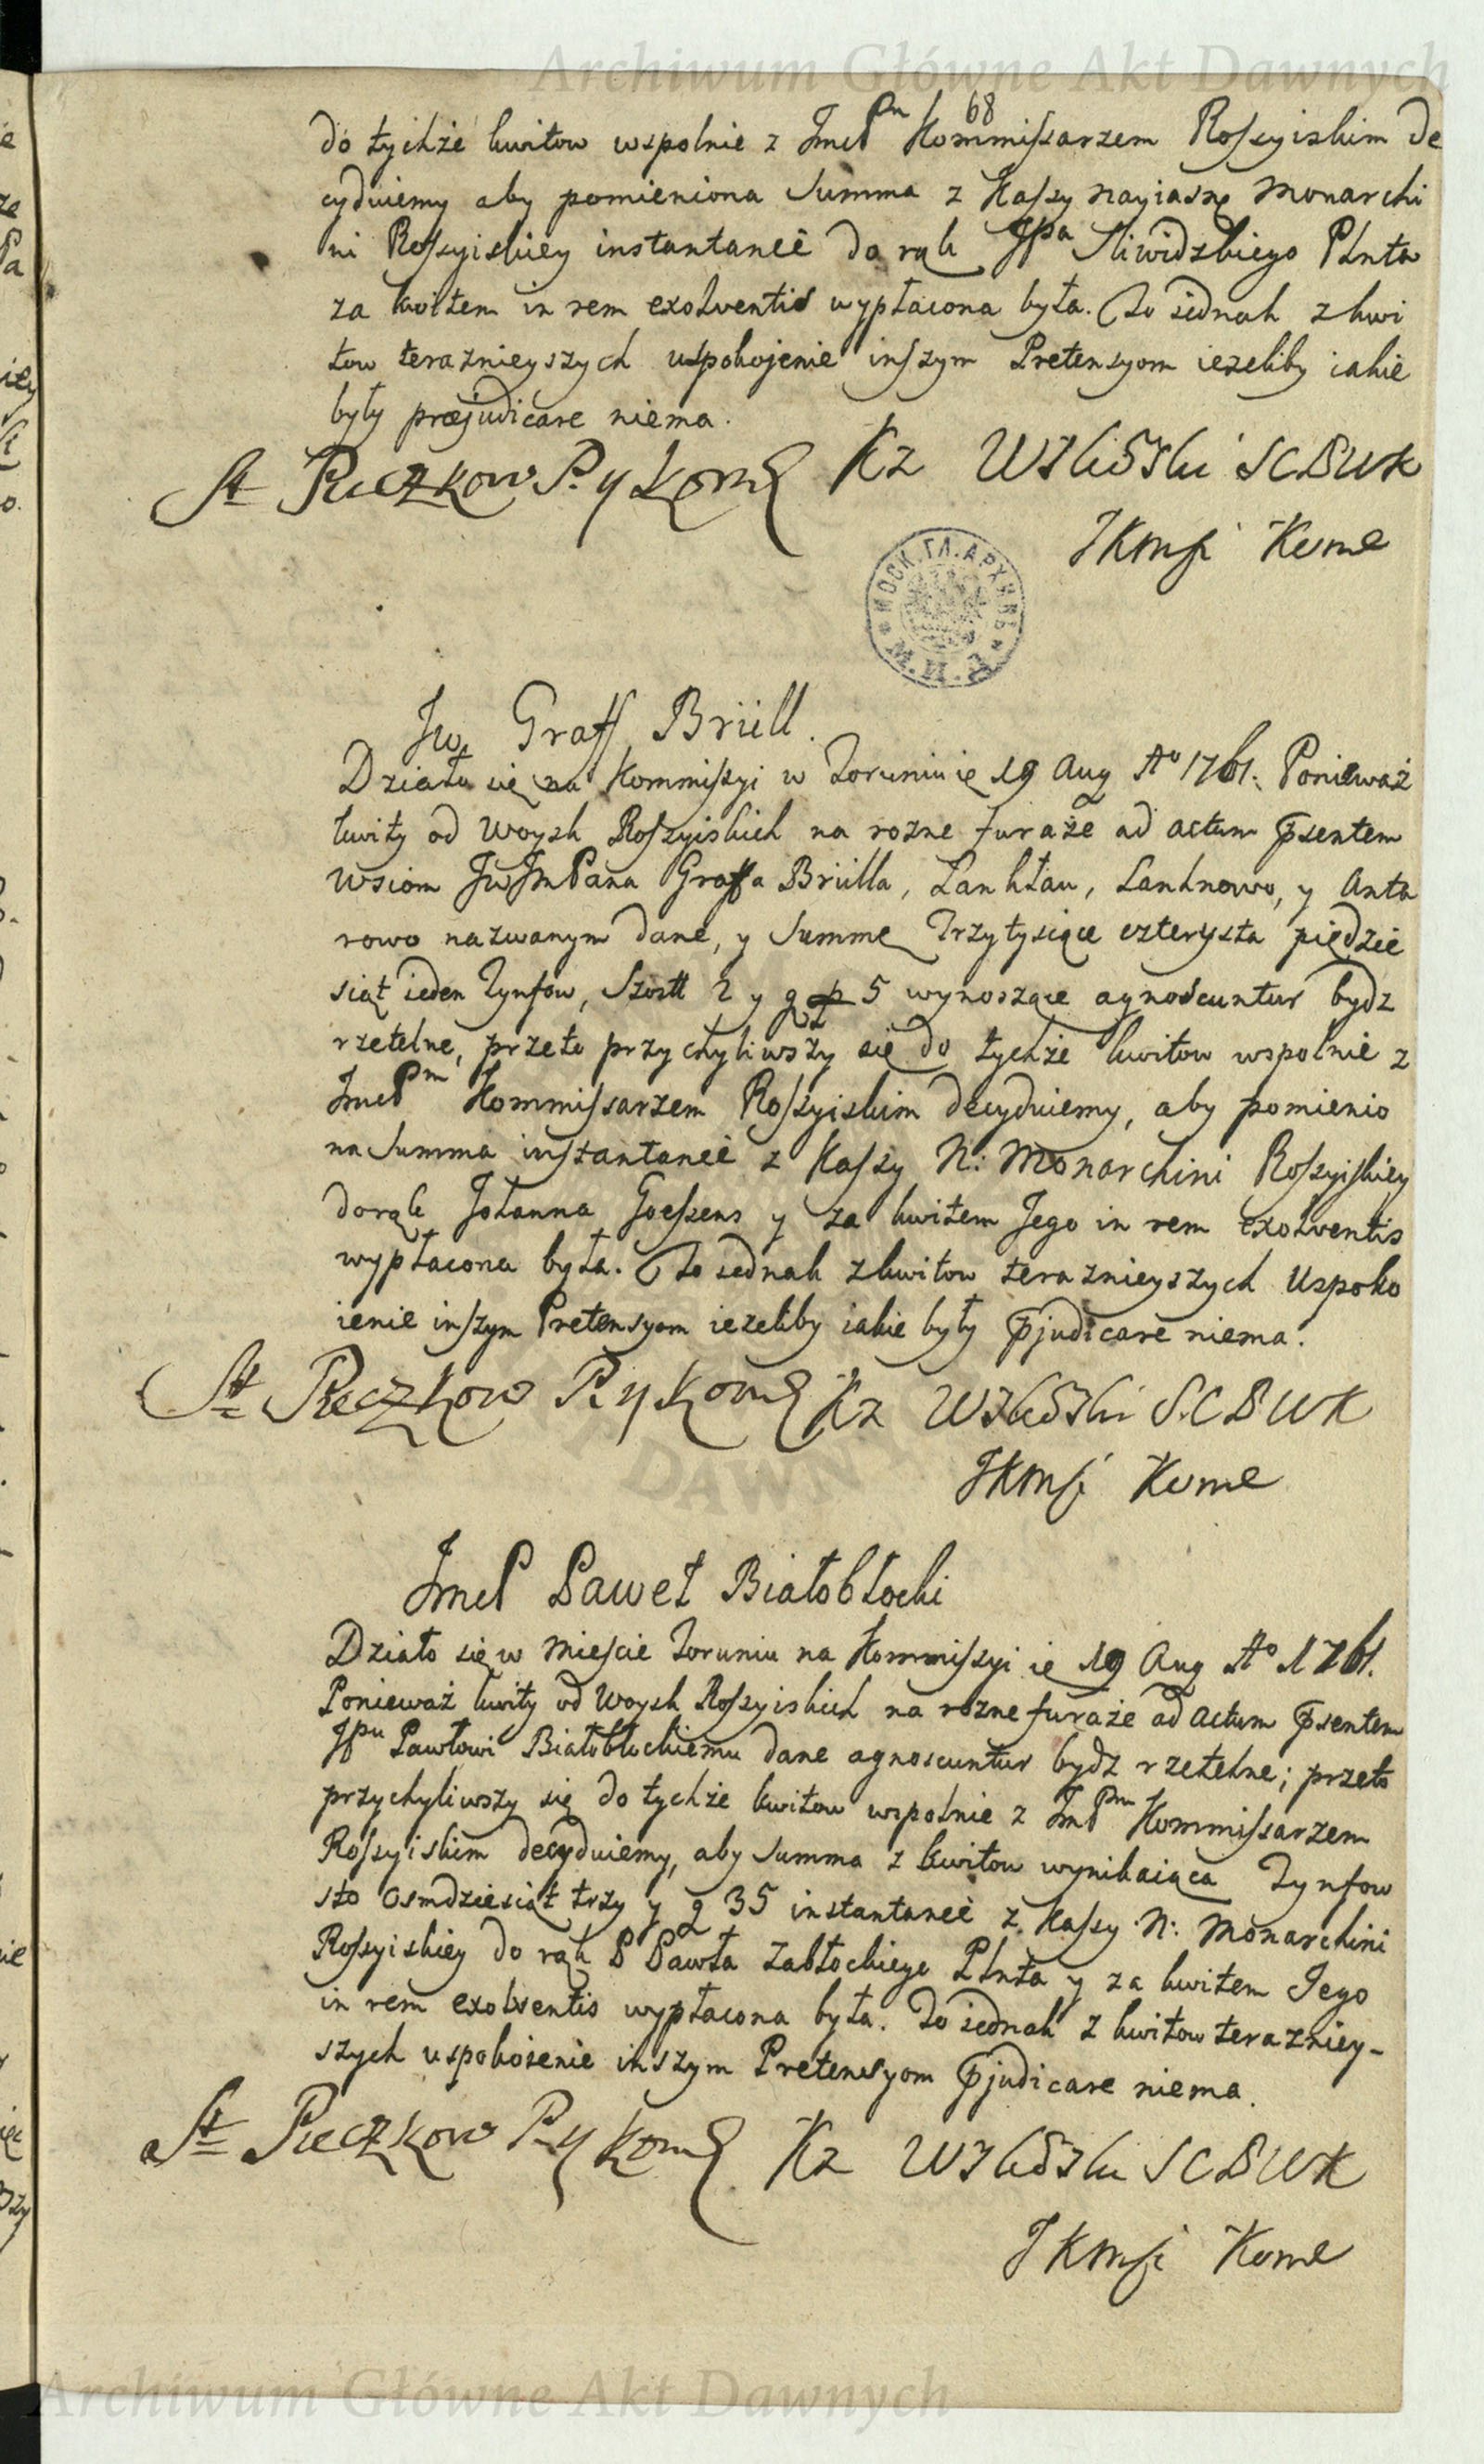 Archiwum Główne Akt Dawnych
68
do tychże kwitow wspolnie z JmcP<sup>m</sup> Kommissarzem Rossyiskim de
cyduiemy aby pomieniona Summa z Kassy nayiasne Monarchi
ni Rossyiskiey instantaneè do rąk JP<sup>a</sup> Sliwidzkiego Plnta
za kwitem in rem exolventis wypłacona była. To iednak z kwi
tow teraznieyszych uspokojenie inszym Pretensyom ieżeliby iakie
były præjudicare niema.
St Pieczkow P. y Kom
Kz SCBWK
JKMsci Kome
МОСК. ГЛ. АРХИВЪ М.И.Д.
Jw Graff Brüll.
Działo się na Kommissyi w Toruniu ie 19 Aug Aº 1761. Ponieważ
kwity od Woysk Rossyiskich na rozne furaże ad actum psentem
Wsiom JwJmPana Graffa Brülla, Lanktau, Lanknowo, y Anta
rowo nazwanym dane, y Summe Trzytysiące czterysta piędzie
siąt ieden Tynfow, Szostk 2 y g 5 wynoszące agnoscuntur bydz
rzetelne, przeto przychyliwszy się do tychże kwitow wspolnie z
JmcP<sup>m</sup> Kommissarzem Rossyiskim decyduiemy, aby pomienio
na Summa instantaneè z Kassy N: Monarchini Rossyiskiey
dorąk Johanna Goessens y za kwitem Jego in rem exolventis
wypłacona była. To iednak z kwitow teraznieyszych Uspoko
ienie inszym Pretensyom ieżeliby iakie były pjudicare niema.
St Pieczkow P. y Kom
Kz S.CBWK
JKMsci Kome
JmcP Paweł Białobłocki
Działo się w Mieście Toruniu na Kommissyi ie 19 Aug Aº 1761.
Ponieważ kwity od Woysk Rossyiskich na rozne furaże ad actum psentem
JP<sup>u</sup> Pawłowi Białobłockiemu dane agnoscuntur bydz rzetelne; przeto
przychyliwszy się do tychże kwitow wspolnie z JmP<sup>m</sup> Kommissarzem
Rossyiskim decyduiemy, aby Summa z kwitow wynikaiąca Tynfow
sto osmdziesiąt trzy y g 35 instantaneè z Kassy N: Monarchini
Rossyiskiey do rąk P Pawła Zabłockiego Plnta y za kwitem Jego
in rem exolventis wypłacona była. To iednak z kwitow terazniey-
szych uspokoienie inszym Pretensyom pjudicare niema.
St Pieczkow P. y Kom
Kz SCBWK
JKMsci Kome
Archiwum Główne Akt Dawnych